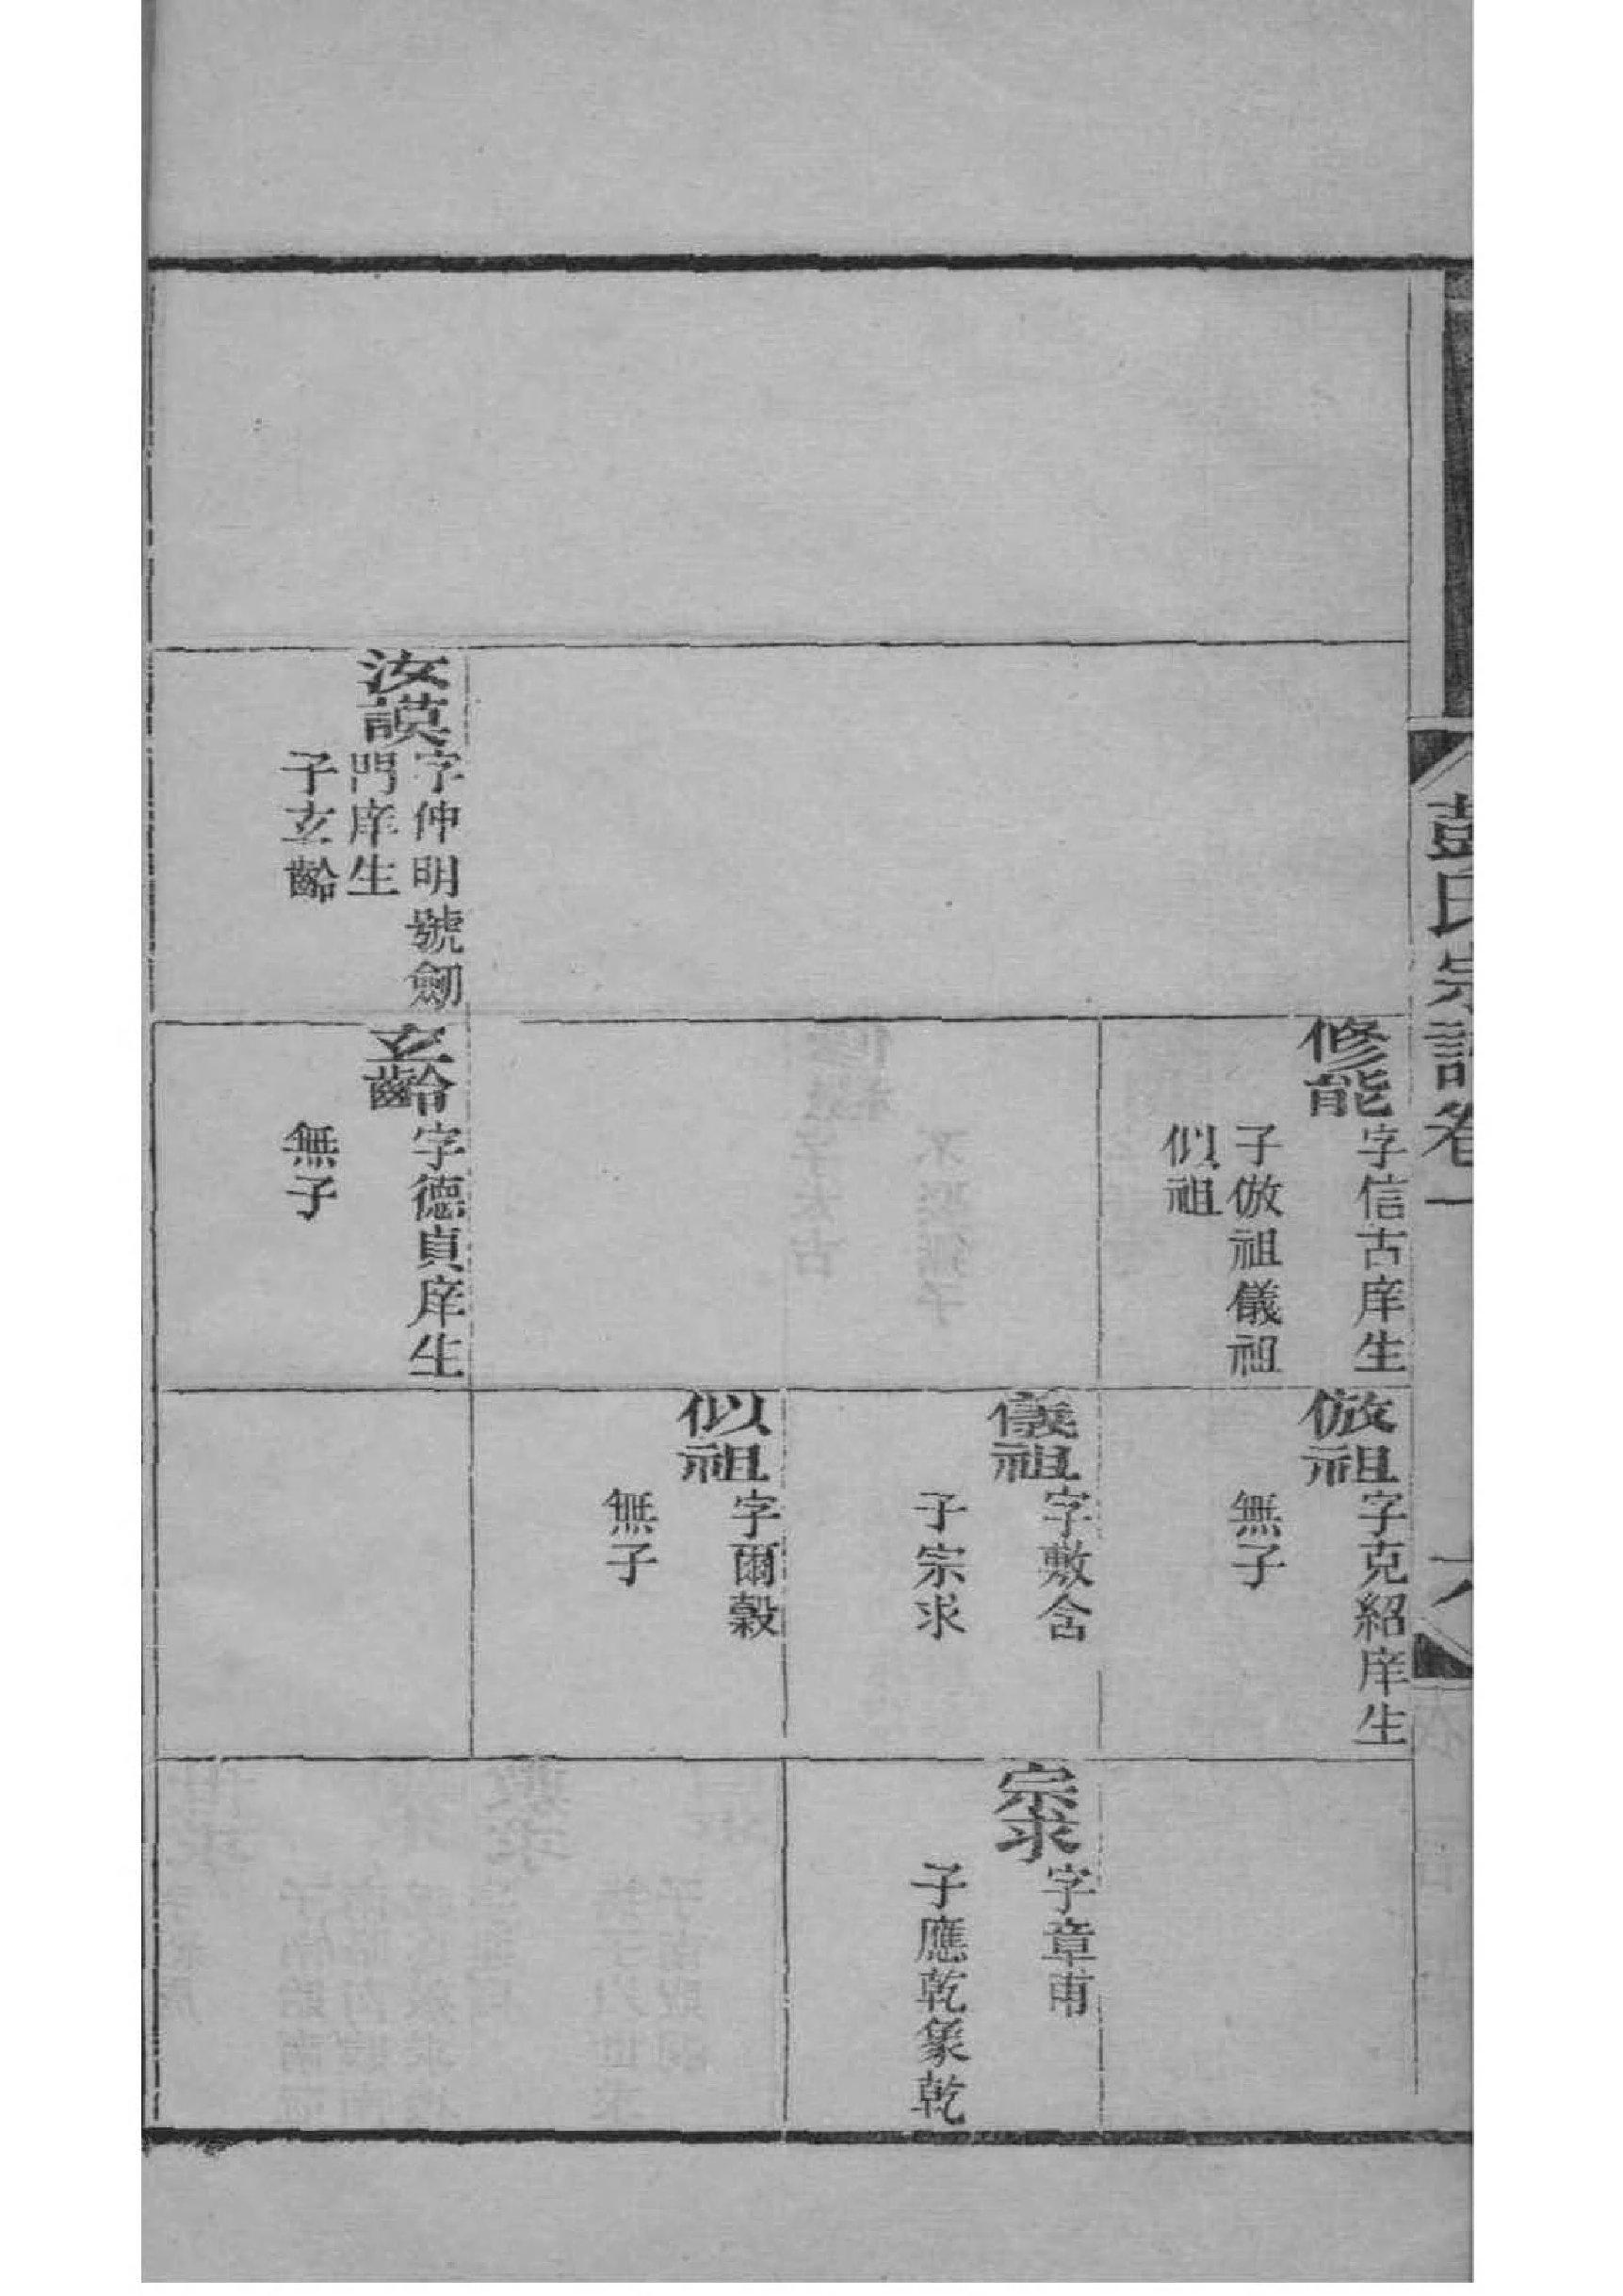 彭氏宗譜卷一
六
修能
字信古庠生
子倣祖儀祖
似祖
倣祖
字克紹庠生
無子
儀祖
字敷含
子宗求
宗求
字章甫
子應乾象乾
似祖
字爾穀
無子
汝謨
字仲明號劒
門庠生
子玄齡
玄齡
字德貞庠生
無子